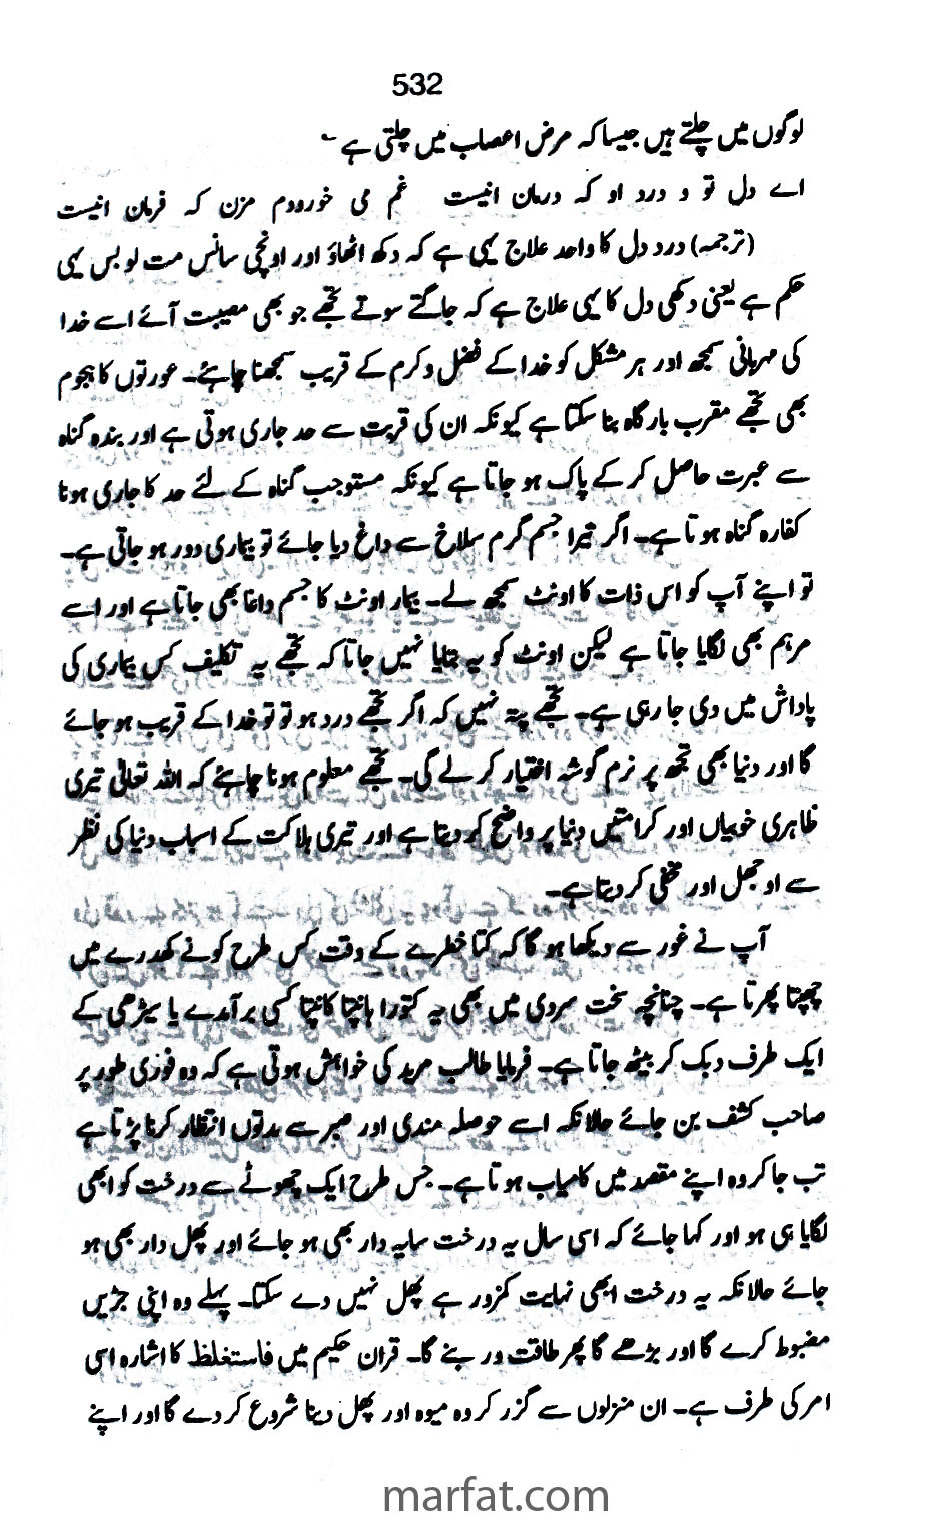 532
لوگوں میں چلتے ہیں جیسا کہ مرض اعصاب میں چلتی ہے ۔
اے دل تو و درد او کہ درمان انیست غم می خورودم مزن کہ فرمان انیست
(ترجمہ) درد دل کا واحد علاج یہی ہے کہ دکھ اٹھاؤ اور اونچی سانس مت لو بس یہی
حکم ہے یعنی دکھی دل کا یہی علاج ہے کہ جاگتے سوتے تجھے جو بھی مصیبت آئے اسے خدا
کی مہربانی سمجھ اور ہر مشکل کو خدا کے فضل و کرم کے قریب سمجھنا چاہئے۔ عورتوں کا ہجوم
بھی تجھے مقرب بارگاہ بنا سکتا ہے کیونکہ ان کی قربت سے حد جاری ہوتی ہے اور بندہ گناہ
سے عبرت حاصل کر کے پاک ہو جاتا ہے کیونکہ مستوجب گناہ کے لئے حد کا جاری ہونا
کفارہ گناہ ہوتا ہے۔ اگر تیرا جسم گرم سلاخ سے داغ دیا جائے تو بیماری دور ہو جاتی ہے۔
تو اپنے آپ کو اس ذات کا اونٹ سمجھ لے۔ بیمار اونٹ کا جسم داغا بھی جاتا ہے اور اسے
مرہم بھی لگایا جاتا ہے لیکن اونٹ کو یہ بتایا نہیں جاتا کہ تجھے یہ تکلیف کس بیماری کی
پاداش میں دی جا رہی ہے۔ تجھے پتہ نہیں کہ اگر تجھے درد ہو تو تو خدا کے قریب ہو جائے
گا اور دنیا بھی تجھ پر نرم گوشہ اختیار کر لے گی۔ تجھے معلوم ہونا چاہئے کہ اللہ تعالیٰ تیری
ظاہری خوبیاں اور کرامتیں دنیا پر واضح کر دیتا ہے اور تیری ہلاکت کے اسباب دنیا کی نظر
سے اوجھل اور مخفی کر دیتا ہے۔
آپ نے غور سے دیکھا ہو گا کہ کتا خطرے کے وقت کس طرح کونے کھدرے میں
چھپتا پھرتا ہے۔ چنانچہ سخت سردی میں بھی یہ کتورا ہانپتا کانپتا کسی برآمدے یا سیڑھی کے
ایک طرف دبک کر بیٹھ جاتا ہے۔ فرمایا طالب مرید کی خواہش ہوتی ہے کہ وہ فوری طور پر
صاحب کشف بن جائے حالانکہ اسے حوصلہ مندی اور صبر سے مدتوں انتظار کرنا پڑتا ہے
تب جا کر وہ اپنے مقصد میں کامیاب ہوتا ہے۔ جس طرح ایک چھوٹے سے درخت کو ابھی
لگایا ہی ہو اور کہا جائے کہ اسی سال یہ درخت سایہ دار بھی ہو جائے اور پھل دار بھی ہو
جائے حالانکہ یہ درخت ابھی نہایت کمزور ہے پھل نہیں دے سکتا۔ پہلے وہ اپنی جڑیں
مضبوط کرے گا اور بڑھے گا پھر طاقت ور بنے گا۔ قران حکیم میں فاستغلظ کا اشارہ اسی
امر کی طرف ہے۔ ان منزلوں سے گزر کر وہ میوہ اور پھل دینا شروع کر دے گا اور اپنے
marfat.com